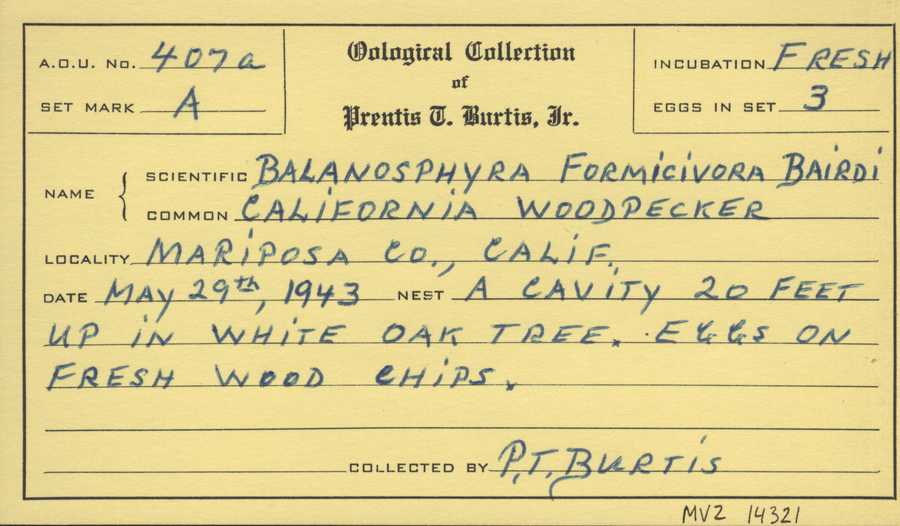 A.O.U. No. 407a
SET MARK A
Oological Collection
of
Prentis T. Burtis, Jr.
INCUBATION FRESH
EGGS IN SET 3
NAME
SCIENTIFIC BALANOSPHYRA FORMICIVORA BAIRDI
COMMON CALIFORNIA WOODPECKER
LOCALITY MARIPOSA CO., CALIF.
DATE MAY 29th, 1943 NEST A CAVITY 20 FEET
UP IN WHITE OAK TREE. EGGS ON
FRESH WOOD CHIPS.
COLLECTED BY P.T. BURTIS
MVZ 14321